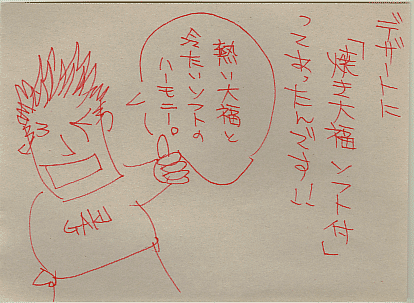 デザートに
「焼き大福ソフト付」
ってあったんです!!
熱い大福と
冷たいソフトの
ハーモニー。
GAKU